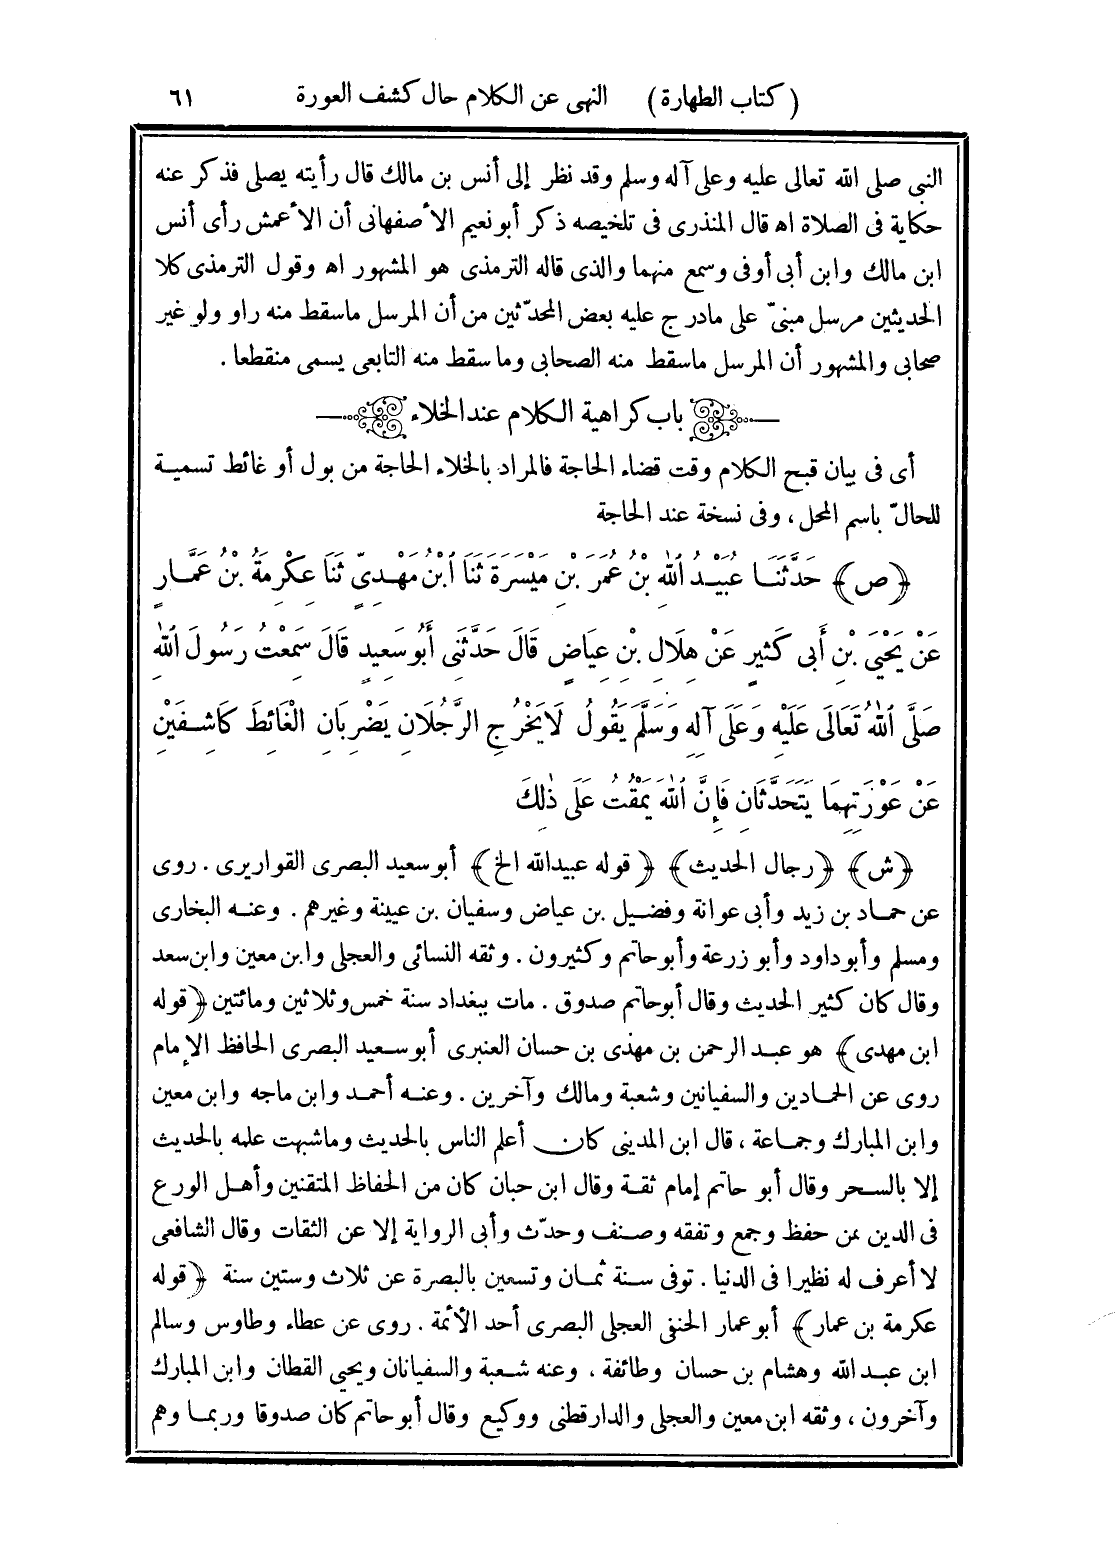 (كتاب الطهارة) النهى عن الكلام حال كشف العورة ٦١
النبى صلى الله تعالى عليه وعلى آله وسلم وقد نظر إلى أنس بن مالك قال رأيته يصلى فذكر عنه
حكاية فى الصلاة اه قال المنذرى فى تلخيصه ذكر أبو نعيم الأصفهانى أن الأعمش رأى أنس
ابن مالك وابن أبى أوفى وسمع منهما والذى قاله الترمذى هو المشهور اه وقول الترمذى كلا
الحديثين مرسل مبنىّ على مادرج عليه بعض المحدّثين من أن المرسل ماسقط منه راو ولو غير
صحابى والمشهور أن المرسل ماسقط منه الصحابى وما سقط منه التابعى يسمى منقطعا .
باب كراهية الكلام عند الخلاء
أى فى بيان قبح الكلام وقت قضاء الحاجة فالمراد بالخلاء الحاجة من بول أو غائط تسمية
للحالّ باسم المحل ، وفى نسخة عند الحاجة
﴿ص﴾ حَدَّثَنَا عُبَيْدُ ٱللهِ بْنُ عُمَرَ بْنِ مَيْسَرَةَ ثَنَا ٱبْنُ مَهْدِىٍّ ثَنَا عِكْرِمَةُ بْنُ عَمَّارٍ
عَنْ يَحْيَى بْنِ أَبِى كَثِيرٍ عَنْ هِلَالِ بْنِ عِيَاضٍ قَالَ حَدَّثَنِى أَبُو سَعِيدٍ قَالَ سَمِعْتُ رَسُولَ ٱللهِ
صَلَّى ٱللهُ تَعَالَى عَلَيْهِ وَعَلَى آلِهِ وَسَلَّمَ يَقُولُ لَا يَخْرُجِ الرَّجُلَانِ يَضْرِبَانِ الْغَائِطَ كَاشِفَيْنِ
عَنْ عَوْرَتِهِمَا يَتَحَدَّثَانِ فَإِنَّ ٱللهَ يَمْقُتُ عَلَى ذٰلِكَ
﴿ش﴾ ﴿رجال الحديث﴾ ﴿قوله عبيدالله الخ﴾ أبو سعيد البصرى القواريرى . روى
عن حماد بن زيد وأبى عوانة وفضيل بن عياض وسفيان بن عيينة وغيرهم . وعنه البخارى
ومسلم وأبو داود وأبو زرعة وأبو حاتم وكثيرون . وثقه النسائى والعجلى وابن معين وابن سعد
وقال كان كثير الحديث وقال أبو حاتم صدوق . مات ببغداد سنة خمس وثلاثين ومائتين ﴿قوله
ابن مهدى﴾ هو عبد الرحمن بن مهدى بن حسان العنبرى أبو سعيد البصرى الحافظ الإمام
روى عن الحمادين والسفيانين وشعبة ومالك وآخرين . وعنه أحمد وابن ماجه وابن معين
وابن المبارك وجماعة ، قال ابن المدينى كان أعلم الناس بالحديث وماشبهت علمه بالحديث
إلا بالسحر وقال أبو حاتم إمام ثقة وقال ابن حبان كان من الحفاظ المتقنين وأهل الورع
فى الدين ممن حفظ وجمع وتفقه وصنف وحدّث وأبى الرواية إلا عن الثقات وقال الشافعى
لا أعرف له نظيرا فى الدنيا . توفى سنة ثمان وتسعين بالبصرة عن ثلاث وستين سنة ﴿قوله
عكرمة بن عمار﴾ أبو عمار الحنفى العجلى البصرى أحد الأئمة . روى عن عطاء وطاوس وسالم
ابن عبد الله وهشام بن حسان وطائفة ، وعنه شعبة والسفيانان ويحيى القطان وابن المبارك
وآخرون ، وثقه ابن معين والعجلى والدارقطنى ووكيع وقال أبو حاتم كان صدوقا وربما وهم